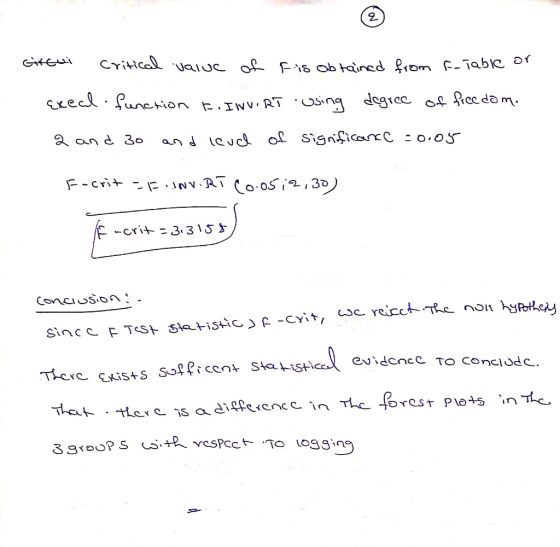 2
Critical value of F is obtained from F-Table or
execl. function F.INV.RT using degree of freedom.
2 and 30 and level of significance = 0.05
F-crit = F.INV.RT (0.05,2,30)
F-crit = 3.3158
Conclusion:-
since F Test statistic > F-crit, we reject the null hypothesis
There exists sufficent statistical evidence To conclude.
That there is a difference in The forest plots in The
3 groups with respect To logging
=